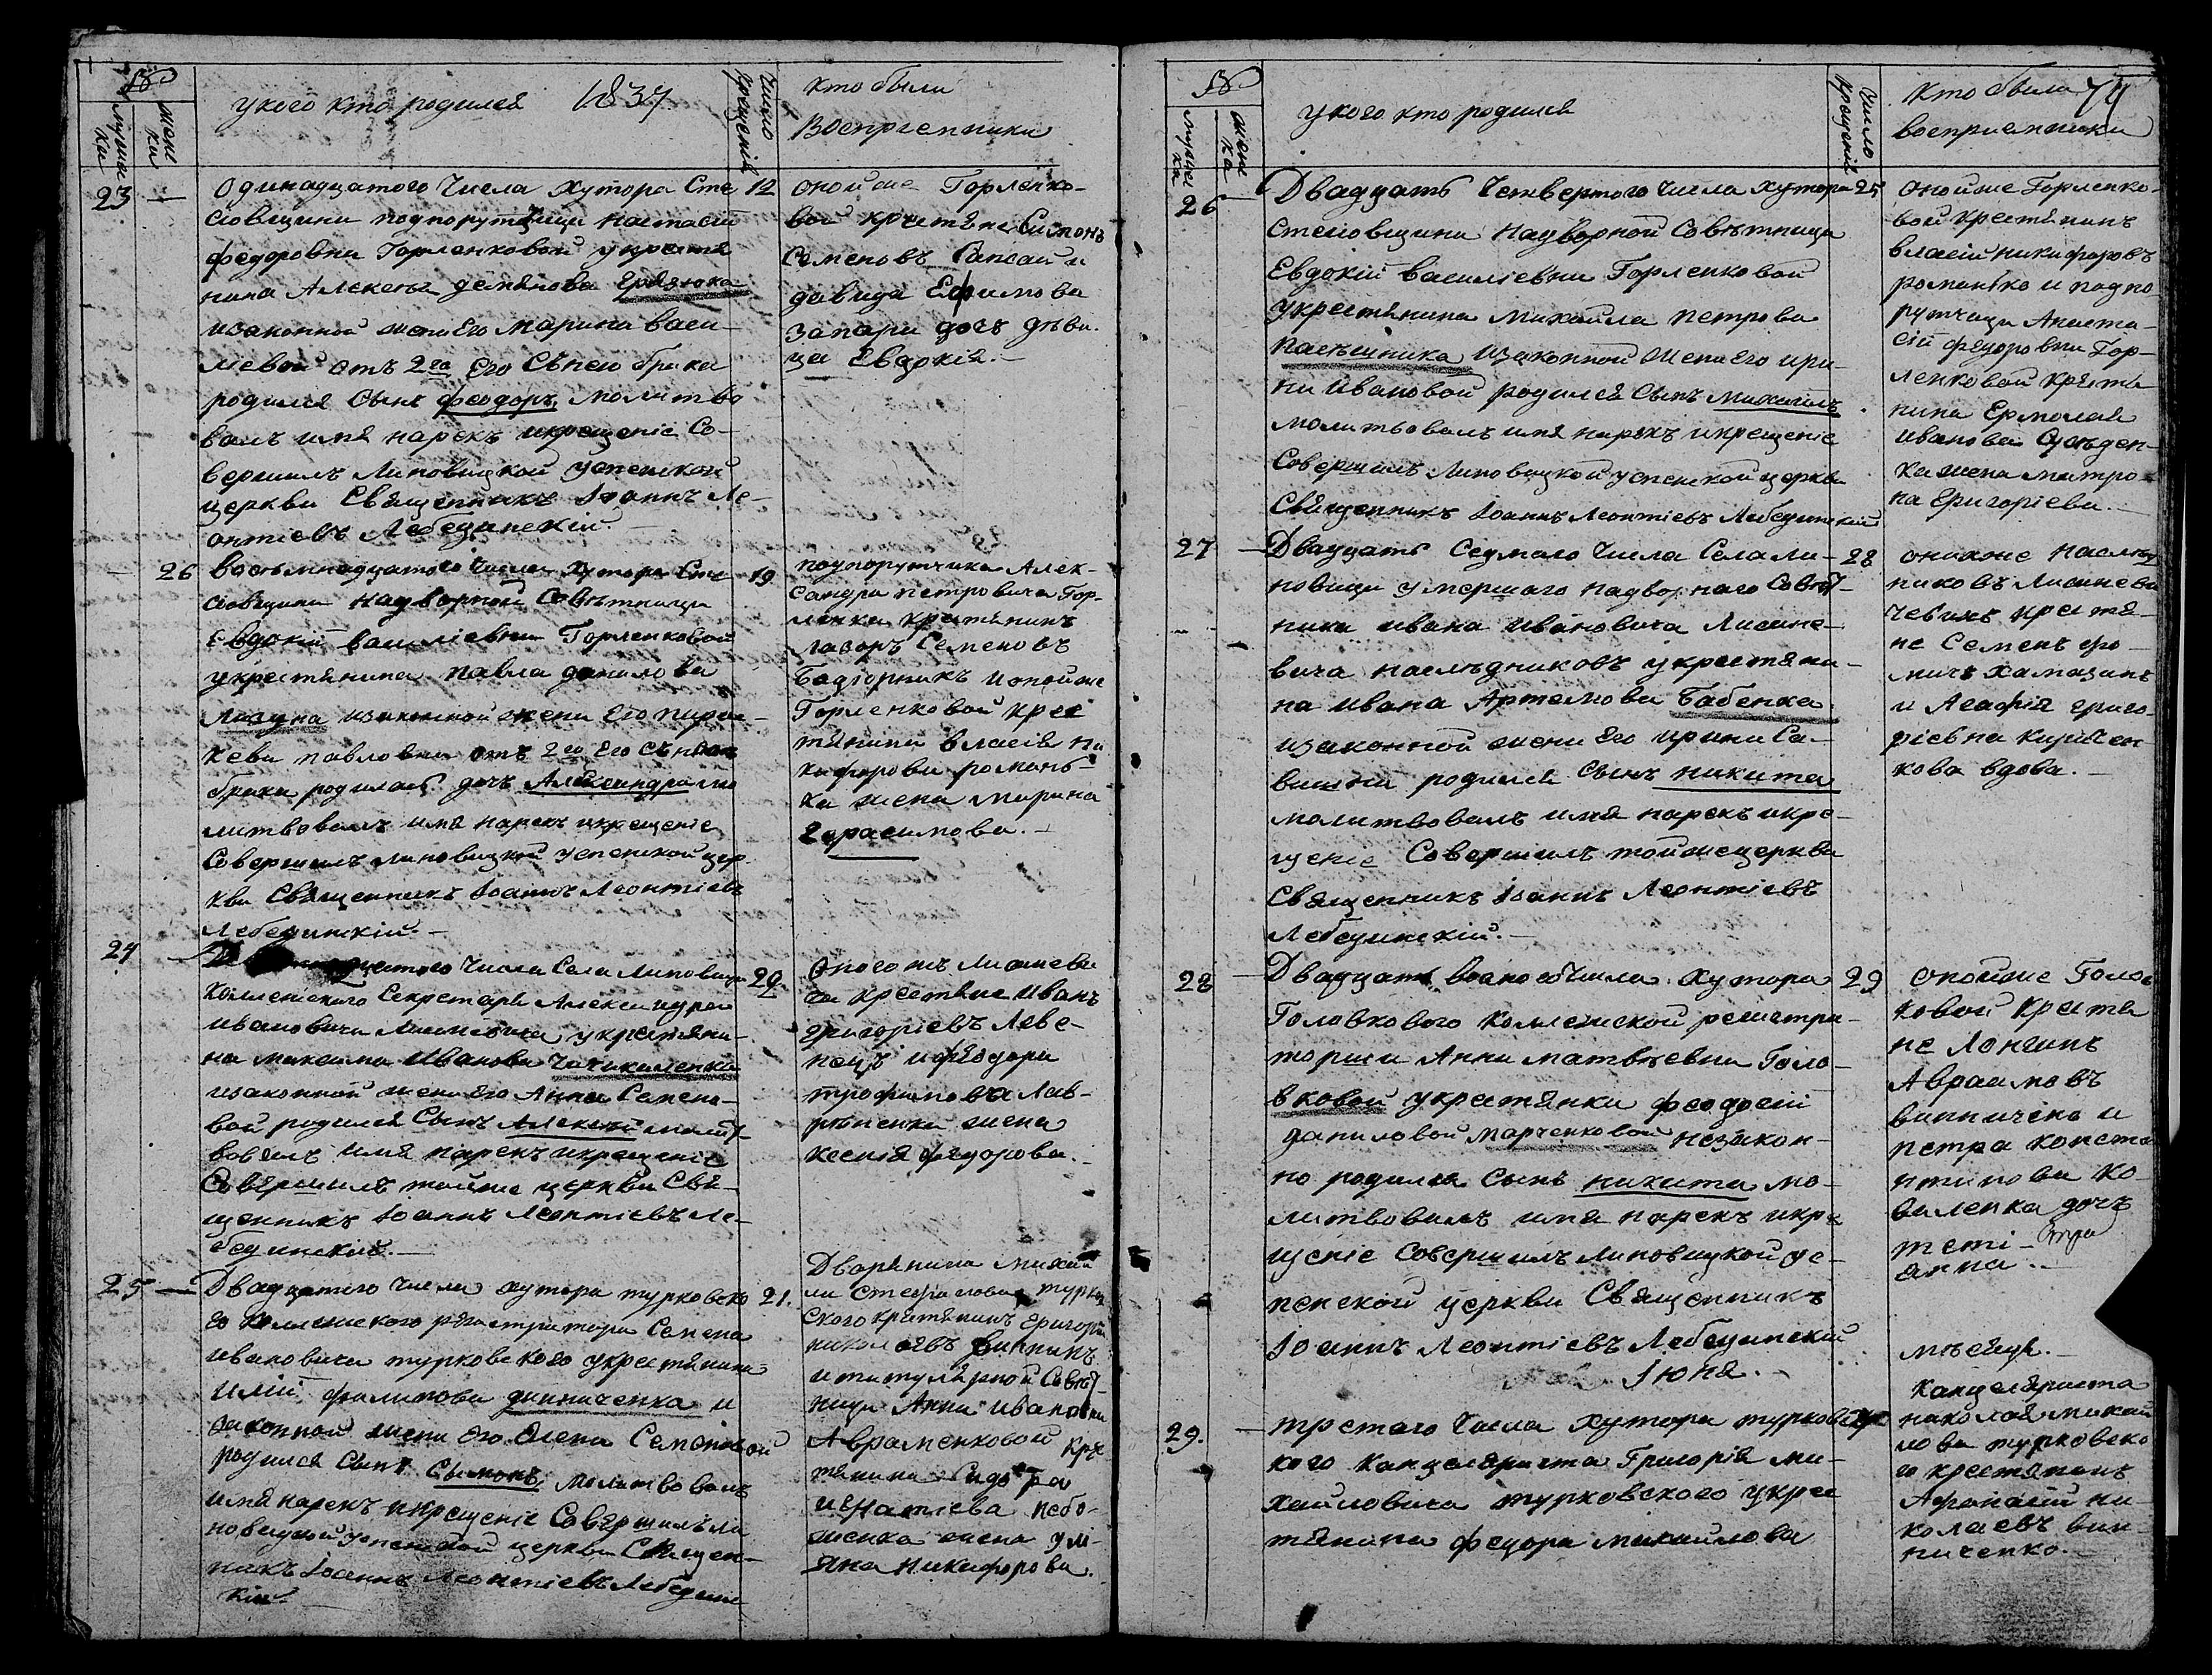 №
мужеска
женска
у кого кто родился 1837
Число крещенія
кто были
восприемники
23 —
Одинадцатого числа хутора Сте
цовщини подпорутчици Настасіи
Федоровни Горленковой укрестя
нина Алексея демянова
изаконной жени Его Марини васи
лиевой отъ 2го Его Съ нею брака
родился Сынъ феодоръ, молитво
валъ имя нарекъ икрещеніе Со-
вершилъ Липовицкой успенской
церкви Священникъ Іоаннъ Ле-
онтіевъ Лебединскій
12
оной же Горленко-
вой крестяне Симонъ
Семеновъ и
давида Ефимова
дочъ деви-
ца Евдокія.—
— 26
восемнадцатого числа хутора Сте
цовщини надворной Совѣтници
Евдокіи василіевни Горленковой
укрестянина павла данилова
Лазуна изаконной жени Его парас-
кеви павловни отъ 2го Его Съ нею
брака родиласъ дочъ Александра мо
литвовалъ имя нарекъ икрещеніе
Совершилъ липовицкой успенской цер
кви Священникъ Іоаннъ Леонтіевъ
Лебединскій.—
19
подпорутчика Алек-
сандра петровича Гор-
ленка крестянинъ
лазоръ Семеновъ
и оной же
Горленковой крес
тянина власія Ни
кифорова романь-
ка жена Марина
Герасимова.—
24 —
числа Села Липовици
Коллежского Секретаря Александра
ивановича укрестяни-
на максима Иванова
изаконной жени Его Анни Семено-
вой родился Сынъ Алексей молит
вовалъ имя нарекъ икрещеніе
Совершилъ тойже церкви Свя-
щенникъ Іоаннъ Леонтіевъ Ле-
бединскій.—
20
оного жъ
ча крестяне Иванъ
григоріевъ Леве-
нецъ и феодора
трофимова Лав-
рѣненка жена
ксенія федорова.
25 —
Двадцатого числа хутора турковско
го Коллежского регистратора Семена
ивановича турковского укрестянина
иліи филипова винниченка и
законной жени Его Олени Семеновой
родился Сынъ Симонъ, молитвовалъ
имя нарекъ икрещеніе Совершилъ ли
повицкой успенской церкви Священ-
никъ Іоаннъ Леонтіевъ Лебединс
кій
21.
Дворянина михай
ла Стефанова турков
ского крестянинъ григорій
николаевъ
и титулярной Совѣт
ници Анни Ивановни
Авраменковой кре
стянина Сидора
игнатіева небо-
женка жена улі-
яна никифорова.
№
мужеска
женска
у кого кто родился
Число крещенія
Кто были
восприемники
74
26 —
Двадцать Четвертого числа хутора
Стецовщини надворной Совѣтници
Евдокіи василіевни Горленковой
укрестянина михаила петрова
пасѣшника изаконной жени Его ири-
ни ивановой родился Сынъ михаилъ
молитвовалъ имя нарекъ икрещеніе
Совершилъ Липовицкой успенской церкви
Священникъ Іоаннъ Леонтіевъ Лебединскій
25
оной же Горленко-
вой крестянинъ
власій никифоровъ
романько и подпо-
рутчици Анаста-
сіи федоровни Гор-
ленковой крестя
нина Ермолая
иванова
ка жена матро-
на григоріева.—
27 —
Двадцать Седмого числа Села ли-
повици умершаго надворнаго Совѣт-
ника ивана ивановича
вича наслѣдниковъ укрестяни-
на ивана Артемова Бабенка
изаконной жени Его ирини Са-
вишни родился Сынъ никита
молитвовалъ имя нарекъ икре-
щеніе Совершилъ тойже церкви
Священникъ Іоаннъ Леонтіевъ
Лебединскій.—
28
онихже наслѣд
никовъ
чевихъ крестя-
не Семенъ фо
мичъ
и Агафія григо-
ріевна киричен-
кова вдова.—
28 —
Двадцать восмого числа хутора
Головкового Коллежской регистра-
торши Анни матвѣевни Голо-
вковой укрестянки феодосіи
даниловой марченковой незакон-
но родился Сынъ никита мо-
литвовалъ имя нарекъ икре
щеніе Совершилъ липовицкой ус-
пенской церкви Священникъ
Іоаннъ Леонтіевъ Лебединскій
29
оной же Голов
ковой крестя
не Лонгинъ
Авраамовъ
винниченко и
петра конста
нтинова ко-
валенка дочъ
анна.—
Іюня.—
мѣсяца.—
29. —
третаго числа хутора турковс
кого Канцеляриста Григорія ми-
хайловича турковского укрес
тянина федора михайлова
Канцеляриста
николая михай
лова турковско
го крестянинъ
Афанасій ни
колаевъ вин
ниченко.—